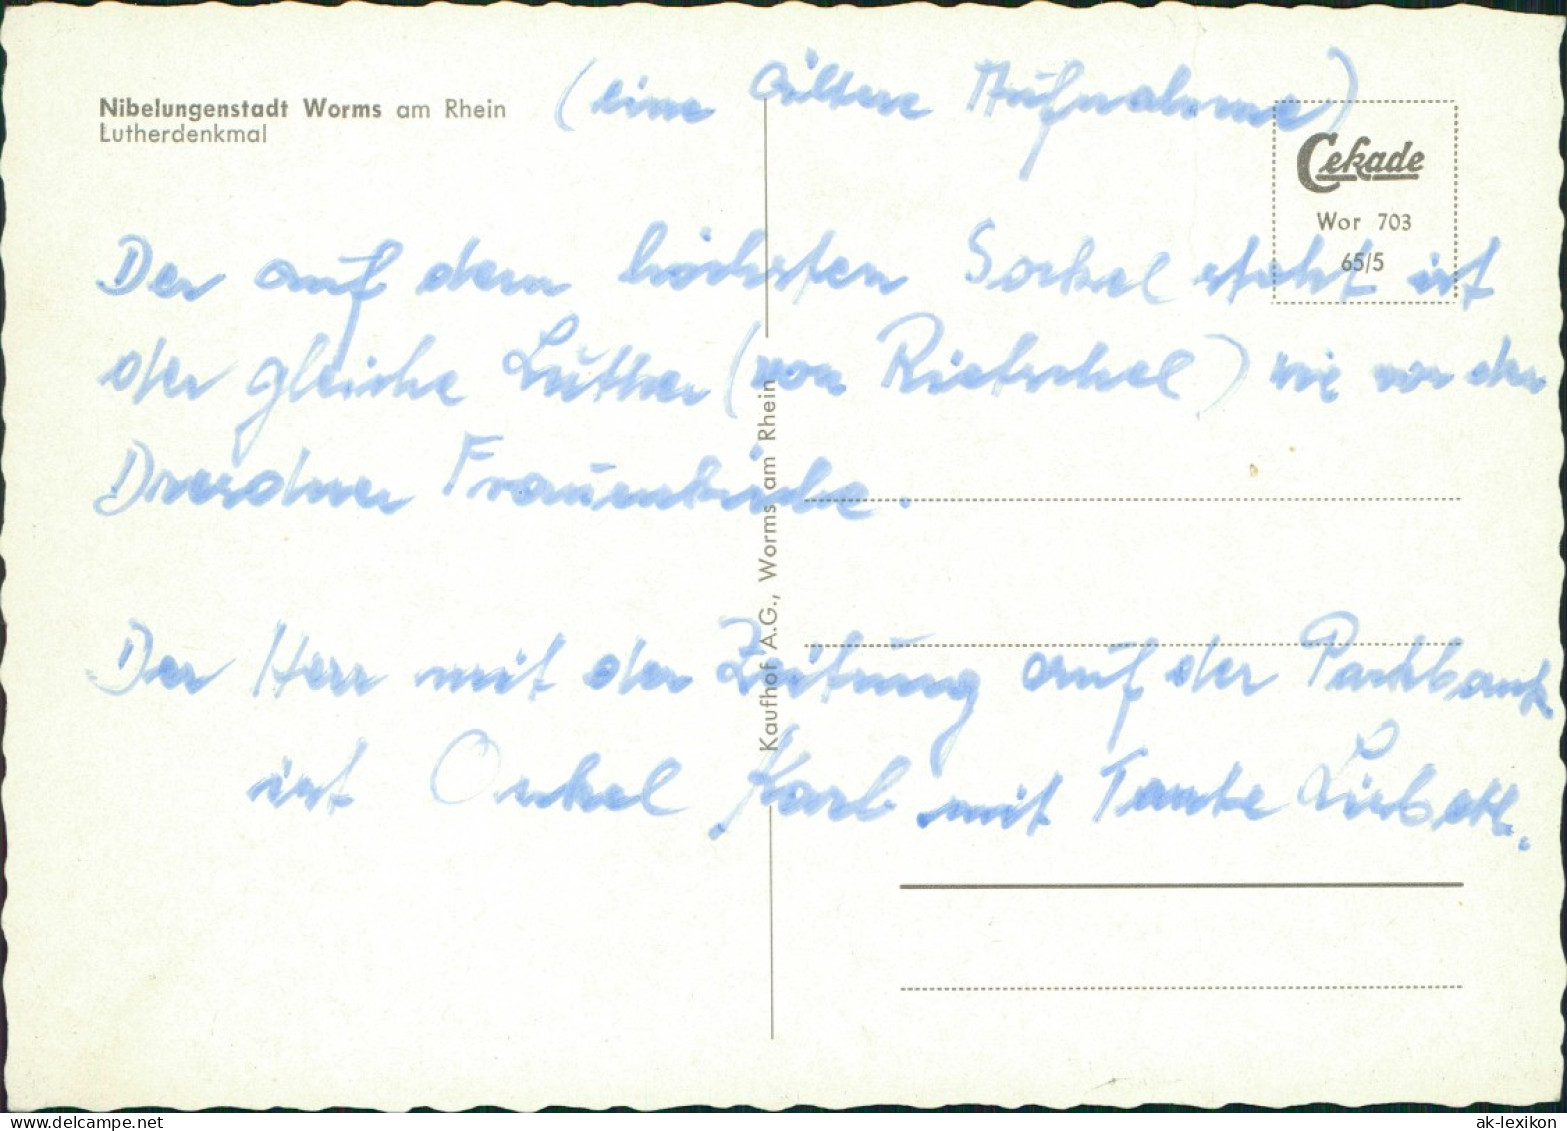 Nibelungenstadt Worms am Rhein
Lutherdenkmal
(eine ältere Aufnahme)
Cekade
Wor 703
65/5
Der auf dem höchsten Sockel steht ist
der gleiche Luther (von Rietschel) wie vor der
Dresdner Frauenkirche.
Der Herr mit der Zeitung auf der Parkbank
ist Onkel Karl mit Tante Liesbeth.
Kaufhof A.G., Worms am Rhein
delcampe.net
ak-lexikon